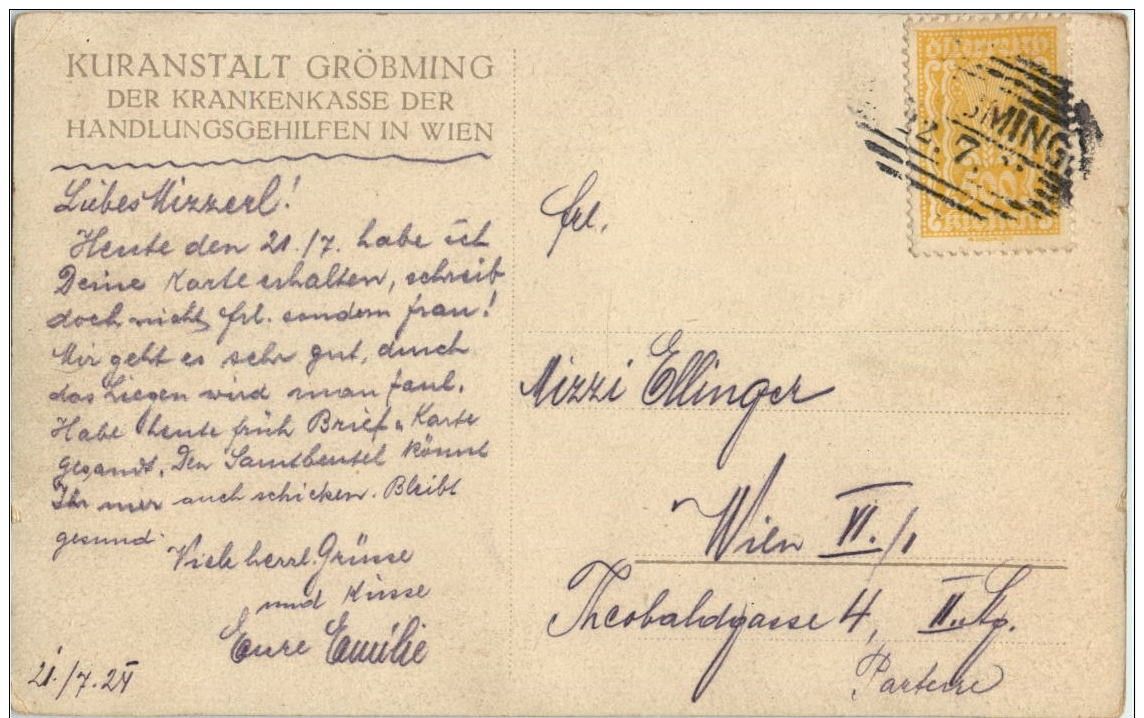 KURANSTALT GRÖBMING
DER KRANKENKASSE DER
HANDLUNGSGEHILFEN IN WIEN
Liebes Mizzerl!
Heute den 21./7. habe ich
Deine Karte erhalten, schreib
doch nicht Frl. sondern Frau!
Mir geht es sehr gut, durch
das Liegen wird man faul.
Habe heute früh Brief u Karte
gesandt. Den Samtbeutel könnt
Ihr mir auch schicken. Bleibt
gesund.
Viele herzl. Grüsse
und Küsse
Eure Emilie
21./7.24
Österreich
500
Kronen
MING
22. 7.
Frl.
Mizzi Ellinger
Wien VI./1
Theobaldgasse 4, II. Stg.
Parterre